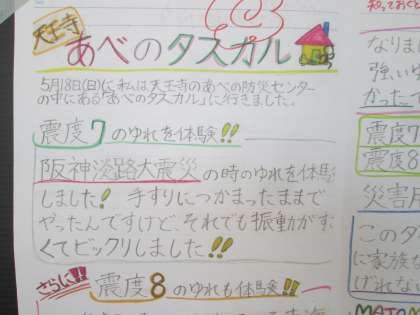 天王寺
あべのタスカル
5月18日(日)に私は天王寺のあべの防災センター
の中にある「あべのタスカル」に行きました。
震度7のゆれを体験!!
阪神淡路大震災の時のゆれを体験
しました! 手すりにつかまったままで
やったんですけど、それでも振動がす
くてビックリしました!!
さらに!! 震度8のゆれも体験!!
知っておくと
なりまし
強いゆ
かったで
震度7
震度8
災害用
このダ
に家族な
げれない